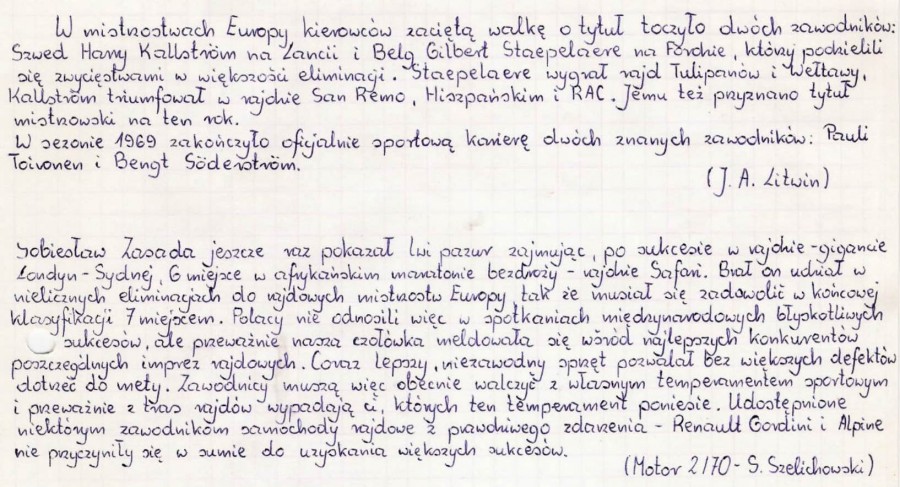 W mistrzostwach Europy kierowców zaciętą walkę o tytuł toczyło dwóch zawodników:
Szwed Harry Kallström na Lancii i Belg Gilbert Staepelaere na Fordzie, którzy podzielili
się zwycięstwami w większości eliminacji. Staepelaere wygrał rajd Tulipanów i Wełtawy,
Kallström triumfował w rajdzie San Remo, Hiszpańskim i RAC. Jemu też przyznano tytuł
mistrzowski na ten rok.
W sezonie 1969 zakończyło oficjalnie sportową karierę dwóch znanych zawodników: Pauli
Toivonen i Bengt Söderström.
(J. A. Litwin)
Sobiesław Zasada jeszcze raz pokazał lwi pazur zajmując, po sukcesie w rajdzie-gigancie
Londyn-Sydnej, 6 miejsce w afrykańskim maratonie bezdroży - rajdzie Safari. Brał on udział w
nielicznych eliminacjach do rajdowych mistrzostw Europy, tak że musiał się zadowolić w końcowej
klasyfikacji 7 miejscem. Polacy nie odnosili więc w spotkaniach międzynarodowych błyskotliwych
sukcesów, ale przeważnie nasza czołówka meldowała się wśród najlepszych konkurentów
poszczególnych imprez rajdowych. Coraz lepszy, niezawodny sprzęt pozwalał bez większych defektów
dotrzeć do mety. Zawodnicy muszą więc obecnie walczyć z własnym temperamentem sportowym
i przeważnie z tras rajdów wypadają ci, których ten temperament poniesie. Udostępnione
niektórym zawodnikom samochody rajdowe z prawdziwego zdarzenia - Renault Gordini i Alpine
nie przyczyniły się w sumie do uzyskania większych sukcesów.
(Motor 2/70 - S. Szelichowski)